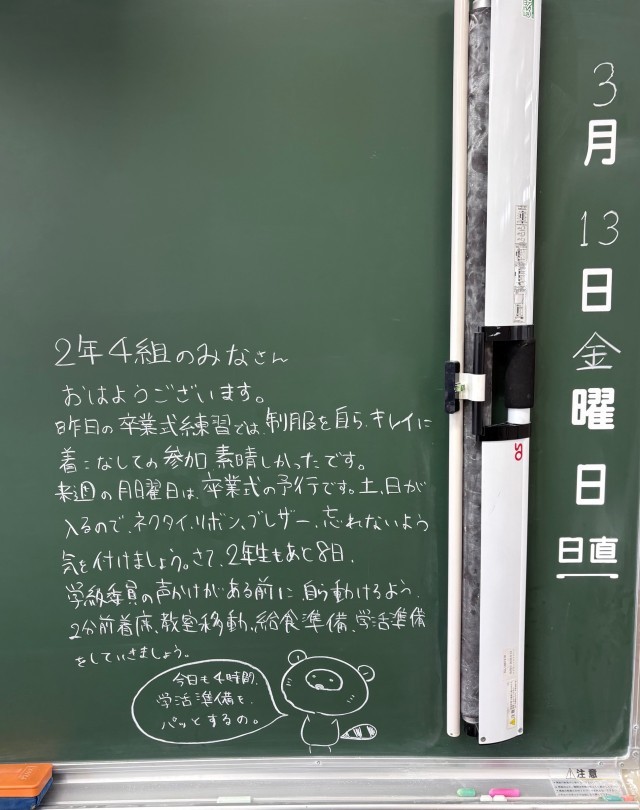 3月13日金曜日
日直
2年4組のみなさん
おはようございます。
昨日の卒業式練習では、制服を自ら、キレイに
着こなしての参加、素晴しかったです。
来週の月曜日は、卒業式の予行です。土、日が
入るので、ネクタイ、リボン、ブレザー、忘れないよう
気を付けましょう。さて、2年生もあと8日、
学級委員の声かけがある前に、自ら動けるよう、
2分前着席、教室移動、給食準備、学活準備
をしていきましょう。
今日も4時間、
学活準備を、
パッとするの。
注意